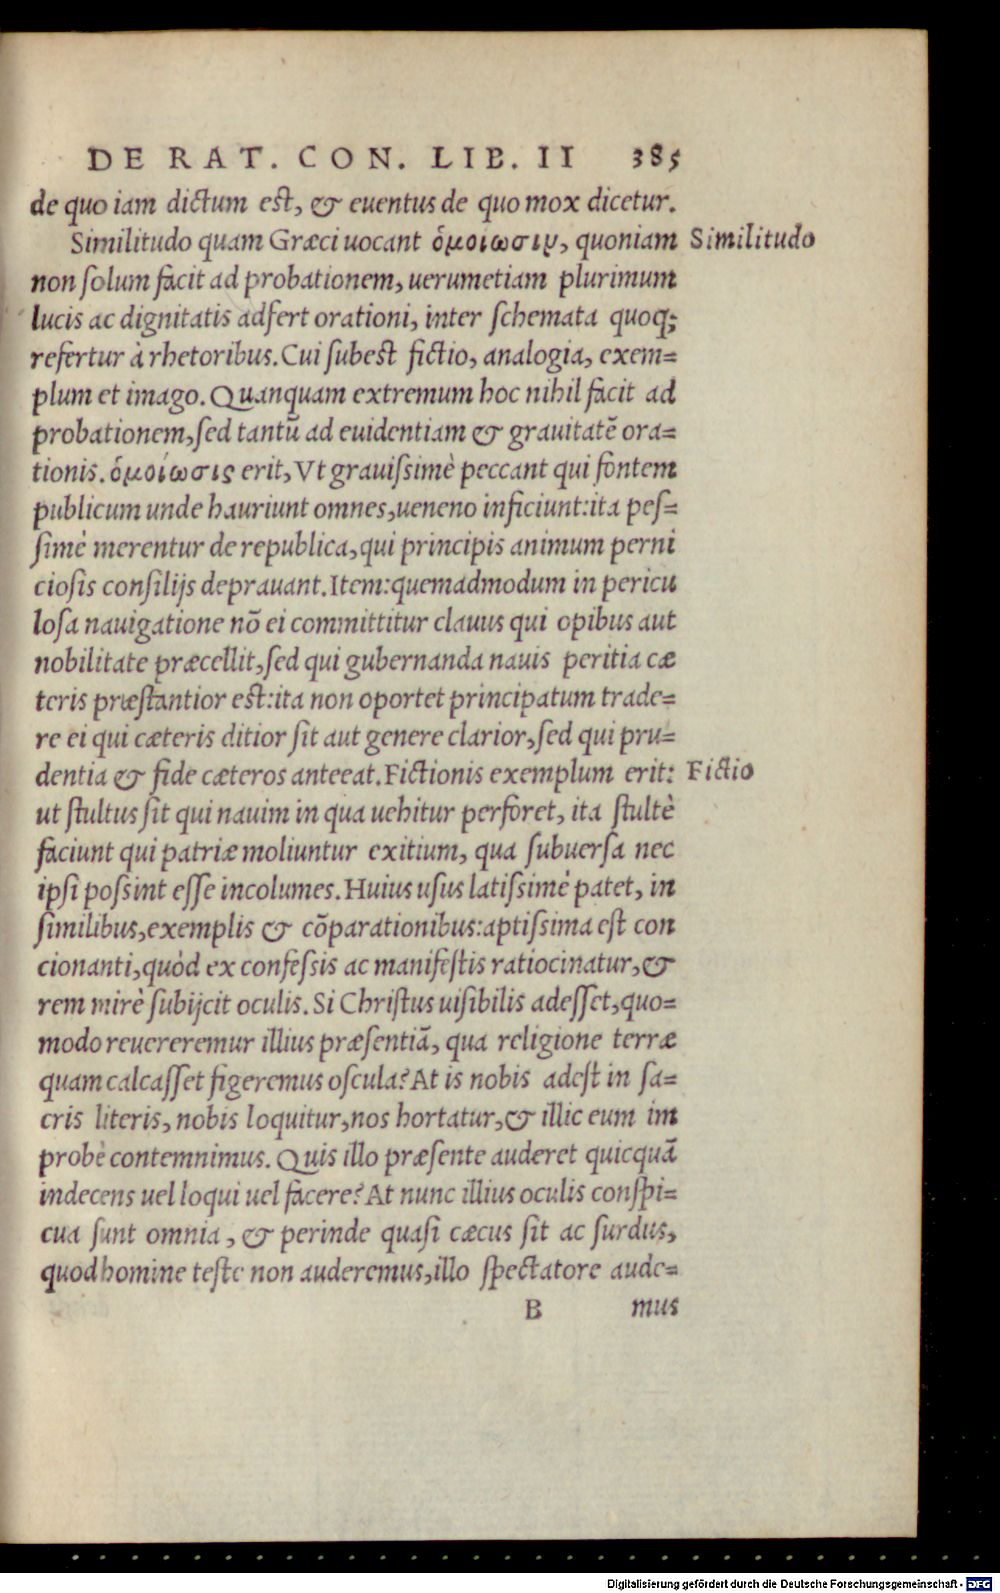 DE RAT. CON. LIB. II 385
de quo iam dictum est, & euentus de quo mox dicetur.
Similitudo quam Græci uocant ὁμοιωσιν, quoniam Similitudo
non solum facit ad probationem, uerumetiam plurimum
lucis ac dignitatis adfert orationi, inter schemata quoq;
refertur à rhetoribus. Cui subest fictio, analogia, exem=
plum et imago. Quanquam extremum hoc nihil facit ad
probationem, sed tantū ad euidentiam & grauitatē ora=
tionis. ὁμοίωσις erit, Vt grauissimè peccant qui fontem
publicum unde hauriunt omnes, ueneno inficiunt: ita pes=
simè merentur de republica, qui principis animum perni
ciosis consilijs deprauant. Item: quemadmodum in pericu
losa nauigatione nō ei committitur clauus qui opibus aut
nobilitate præcellit, sed qui gubernanda nauis peritia cæ
teris præstantior est: ita non oportet principatum trade=
re ei qui cæteris ditior sit aut genere clarior, sed qui pru=
dentia & fide cæteros anteeat. Fictionis exemplum erit: Fictio
ut stultus sit qui nauim in qua uehitur perforet, ita stultè
faciunt qui patriæ moliuntur exitium, qua subuersa nec
ipsi possint esse incolumes. Huius usus latissimè patet, in
similibus, exemplis & cōparationibus: aptissima est con
cionanti, quòd ex confessis ac manifestis ratiocinatur, &
rem mirè subijcit oculis. Si Christus uisibilis adesset, quo=
modo reuereremur illius præsentiā, qua religione terræ
quam calcasset figeremus oscula? At is nobis adest in sa=
cris literis, nobis loquitur, nos hortatur, & illic eum im
probè contemnimus. Quis illo præsente auderet quicquā
indecens uel loqui uel facere? At nunc illius oculis conspi=
cua sunt omnia, & perinde quasi cæcus sit ac surdus,
quod homine teste non auderemus, illo spectatore aude=
B mus
Digitalisierung gefördert durch die Deutsche Forschungsgemeinschaft - DFG